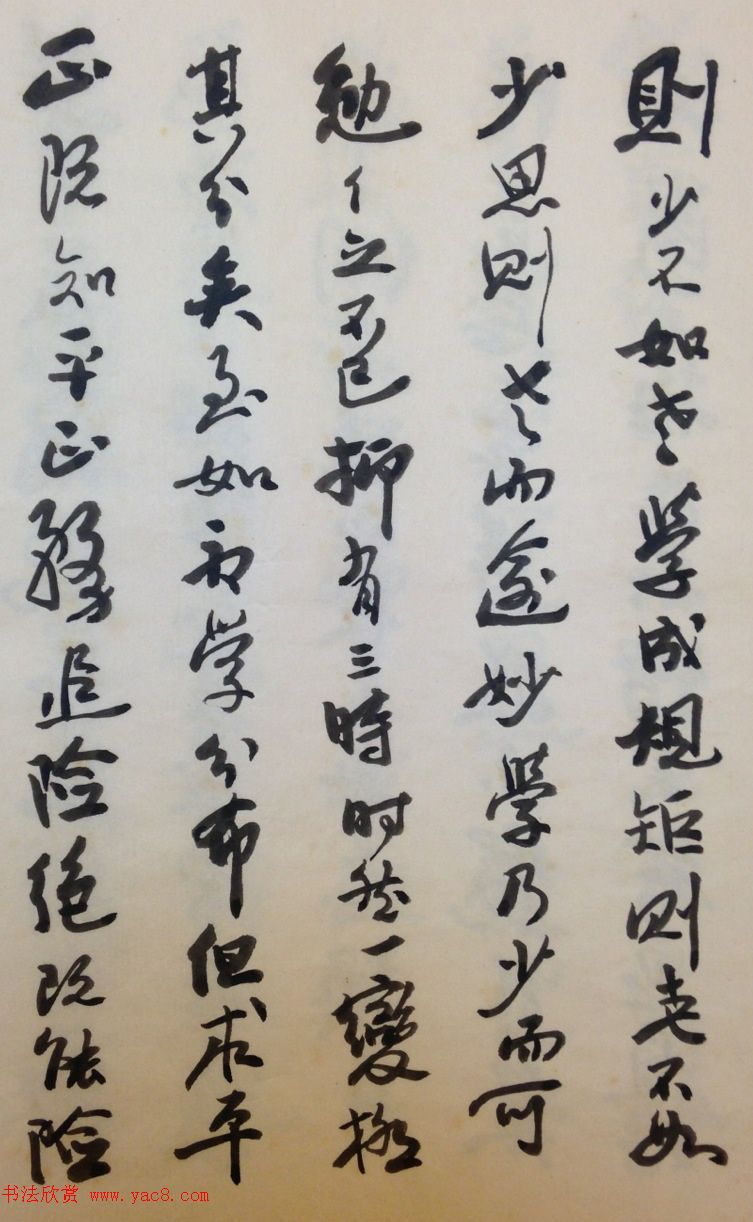 則少不如老學成規矩则老不如
少思则老而逾妙學乃少而可
勉々之不已抑有三時时然一變極
其分矣至如初學分布但求平
正既知平正務追险絕既能险
书法欣赏 www.yac8.com